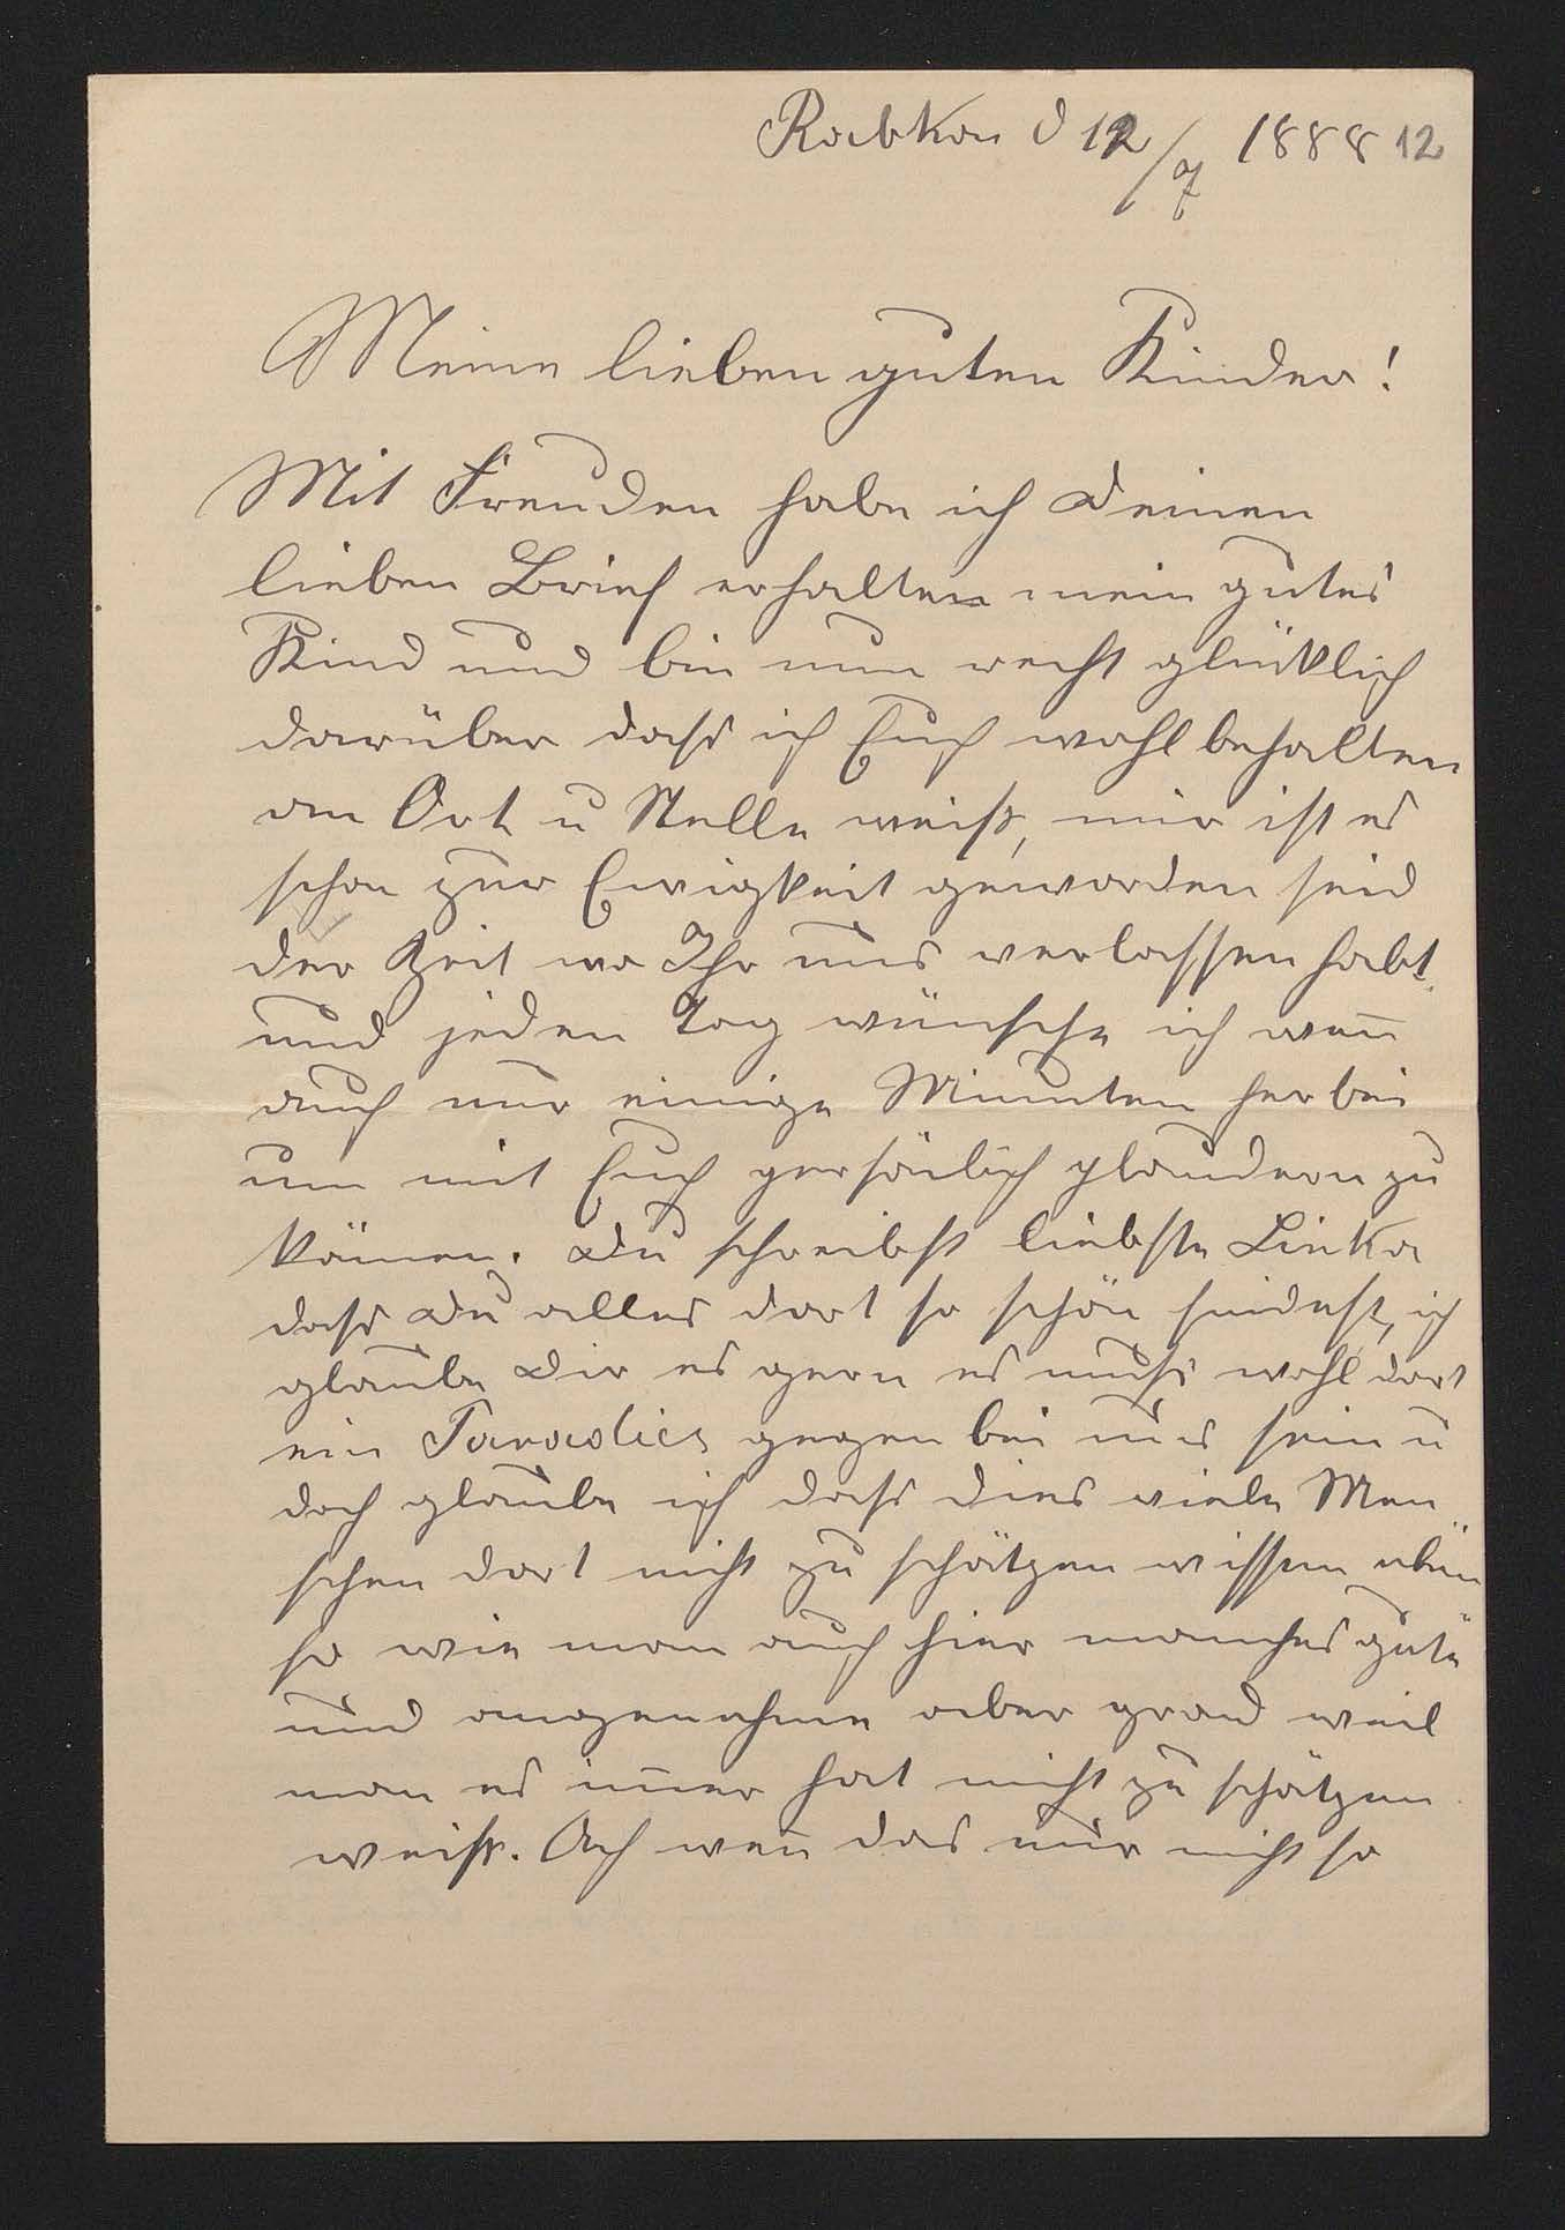 Rabka d 12/7 1888 12
Meine lieben guten Kinder!
Mit Freuden habe ich Deinen
lieben Brief erhalten mein gutes
Kind und bin nun recht glüklich
darüber dass ich Euch wohl behalten
an Ort u Stelle weiß, mir ist es
schon zur Ewigkeit geworden seid
der Zeit wo Ihr uns verlassen habt.
und jeden Tag wünsche ich wen̄
auch nur einige Minuten herbei
um mit Euch persönlich plaudern zu
können. Du schreibst liebste Linka
dass Du alles dort so schön findest, ich
glaube Dir es gern es muss wohl dort
ein Paradies gegen bei uns sein u
doch glaube ich dass dies viele Men
schen dort nicht zu schätzen wissen eben
so wie man auch hier manches gute
und angenehme aber grad weil
man es im̄er hat nicht zu schätzen
weiß. Ach wen̄ das nur nicht so